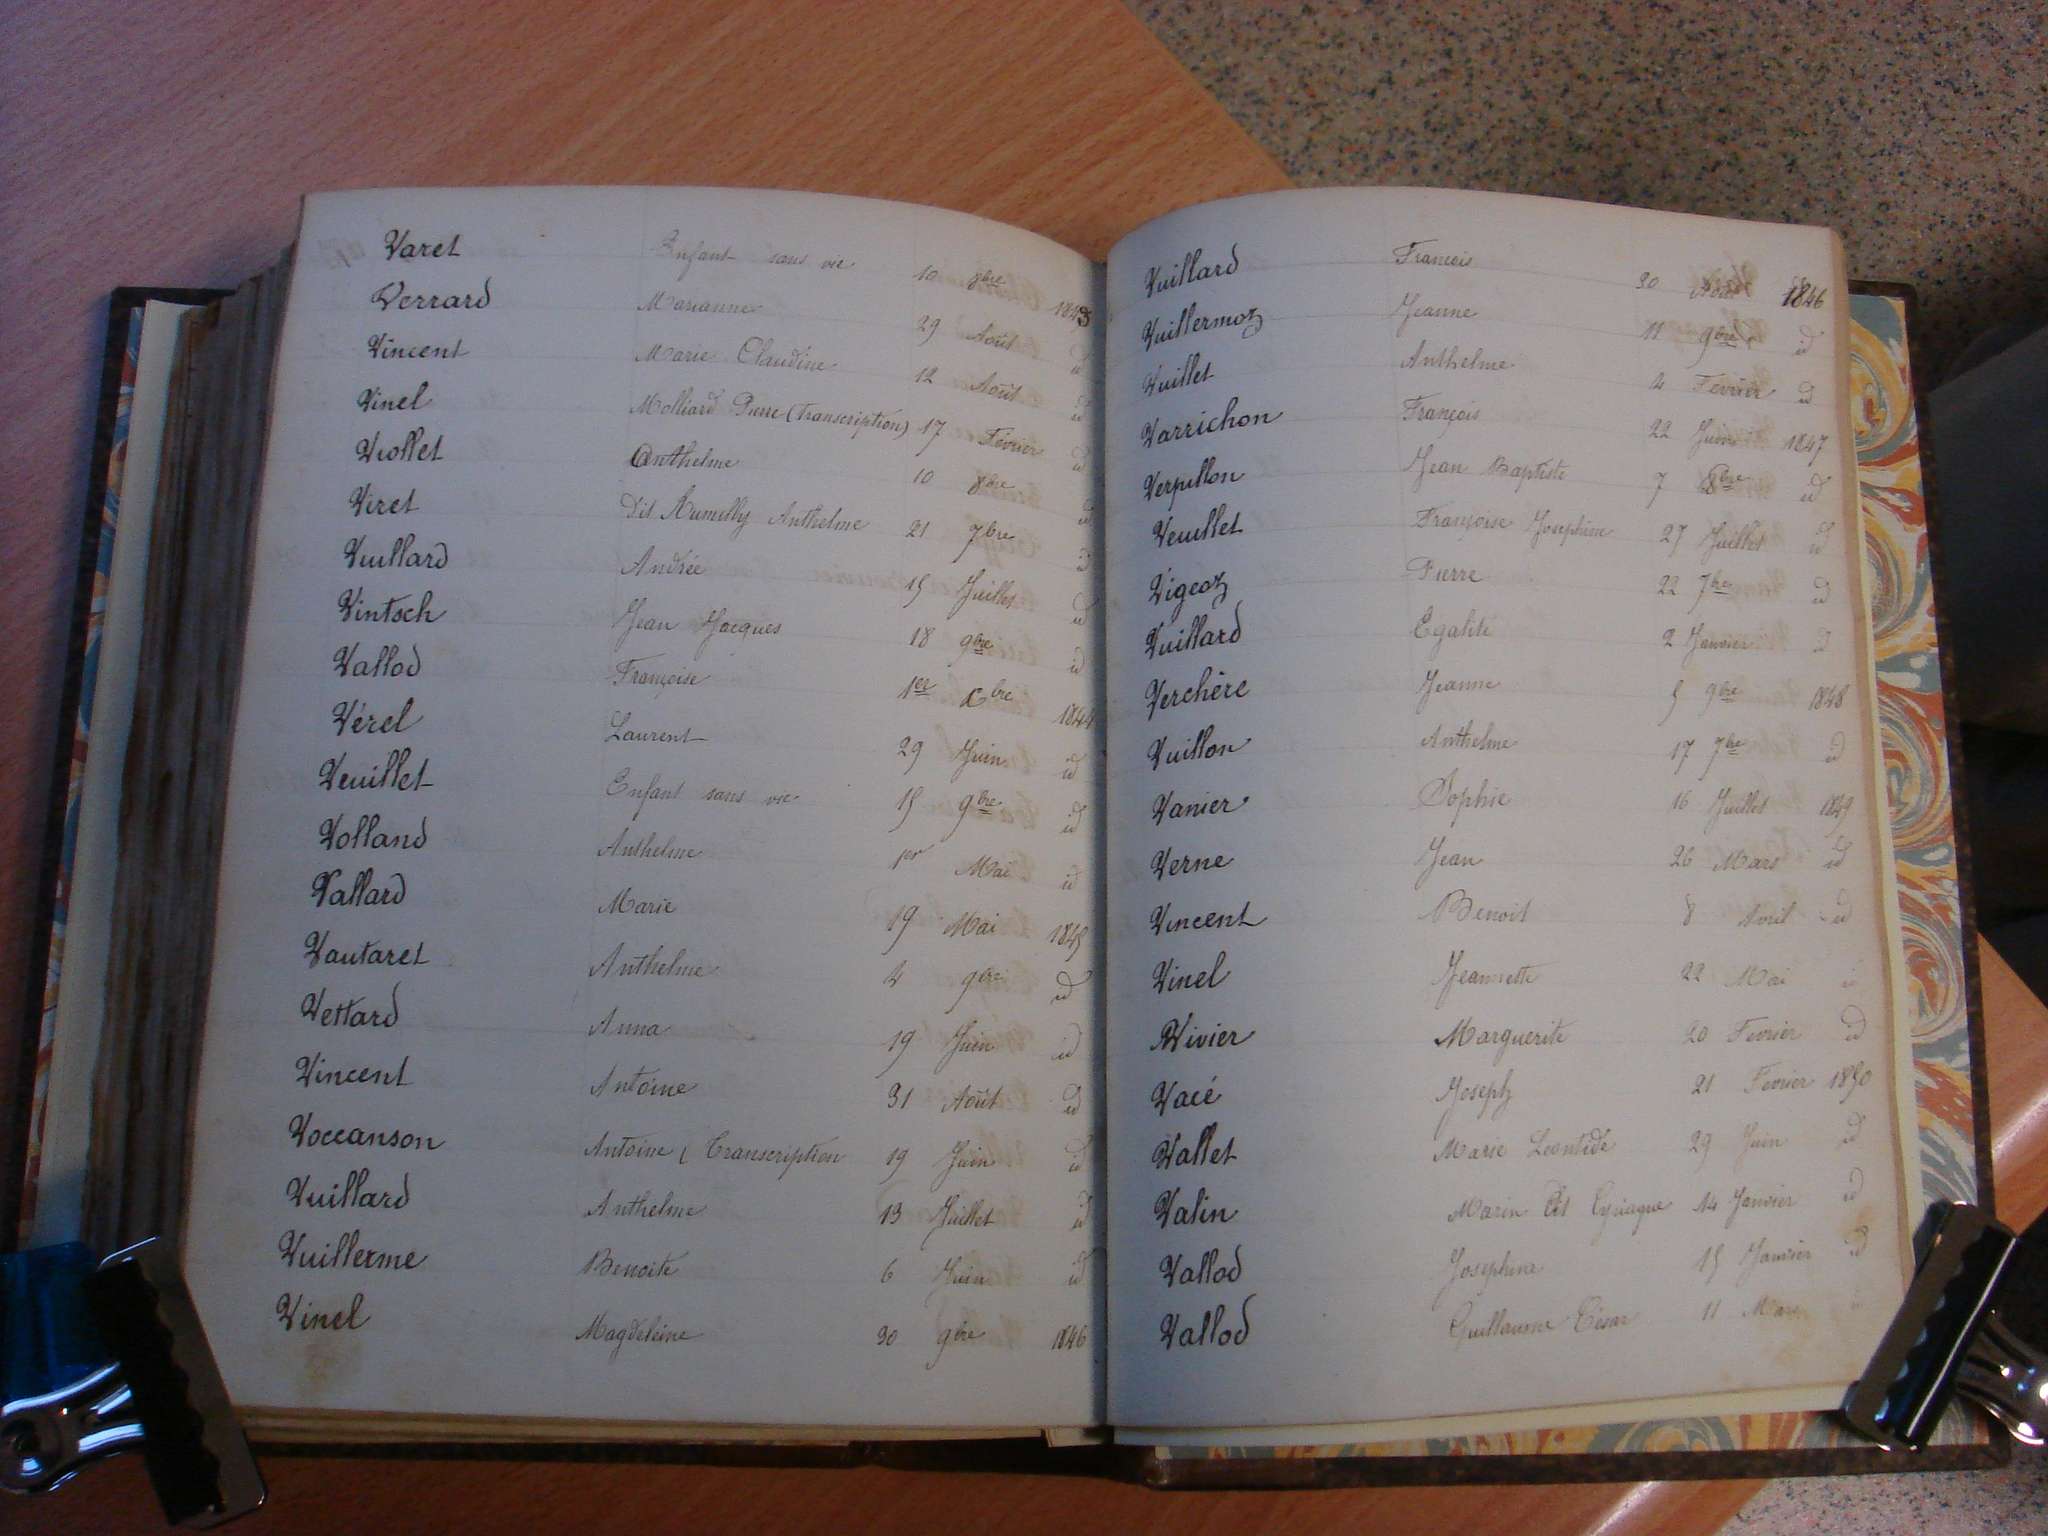 Varet Enfant sans vie 10 8bre 1843
Verrard Marianne 29 Août id
Vincent Marie Claudine 12 Août id
Vinel Molliard Pierre (Transcription) 17 Février id
Viollet Anthelme 10 8bre id
Viret dit Rumilly Anthelme 21 7bre id
Vuillard Andrée 15 Juillet id
Vintsch Jean Jacques 18 9bre id
Vallod Françoise 1er Xbre 1844
Vérel Laurent 29 Juin id
Veuillet Enfant sans vie 15 9bre id
Volland Anthelme 1er Mai id
Vallard Marie 19 Mai 1845
Vautaret Anthelme 4 9bre id
Vettard Anna 19 Juin id
Vincent Antoine 31 Août id
Voccanson Antoine (Transcription 19 Juin id
Vuillard Anthelme 13 Juillet id
Vuillerme Benoite 6 Juin id
Vinel Magdeleine 30 9bre 1846
Vuillard François 30 Août 1846
Vuillermoz Jeanne 11 9bre id
Vuillet Anthelme 4 Fevrier id
Varrichon François 22 Juin 1847
Verpillon Jean Baptiste 7 8bre id
Veuillet Françoise Josephine 27 Juillet id
Vigeoz Pierre 22 7bre id
Vuillard Egalité 2 Janvier id
Verchère Jeanne 5 9bre 1848
Vuillon Anthelme 17 7bre id
Vanier Sophie 16 Juillet 1849
Verne Jean 26 Mars id
Vincent Benoit 8 Avril id
Vinel Jeannette 22 Mai id
Vivier Marguerite 20 Fevrier id
Vacé Joseph 21 Fevrier 1850
Vallet Marie Leontide 29 Juin id
Valin Marin Cyriaque 14 Janvier id
Vallod Josephine 15 Janvier id
Vallod Guillaume César 11 Mars